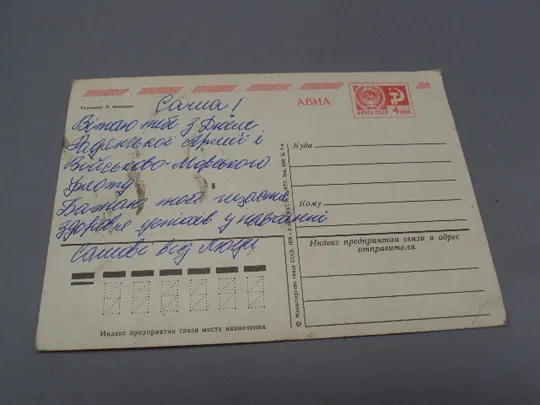 Художник
Саша!
Вітаю тебе з Днем
Радянської Армії і
Військово-Морського
Флоту
Бажаю тобі щастя
здоров'я успіхів у навчанні
Сашові від Люди
АВИА
ПОЧТА СССР
4 коп
Куда
Кому
Индекс предприятия связи и адрес
отправителя
Индекс предприятия связи места назначения
© Министерство связи СССР,